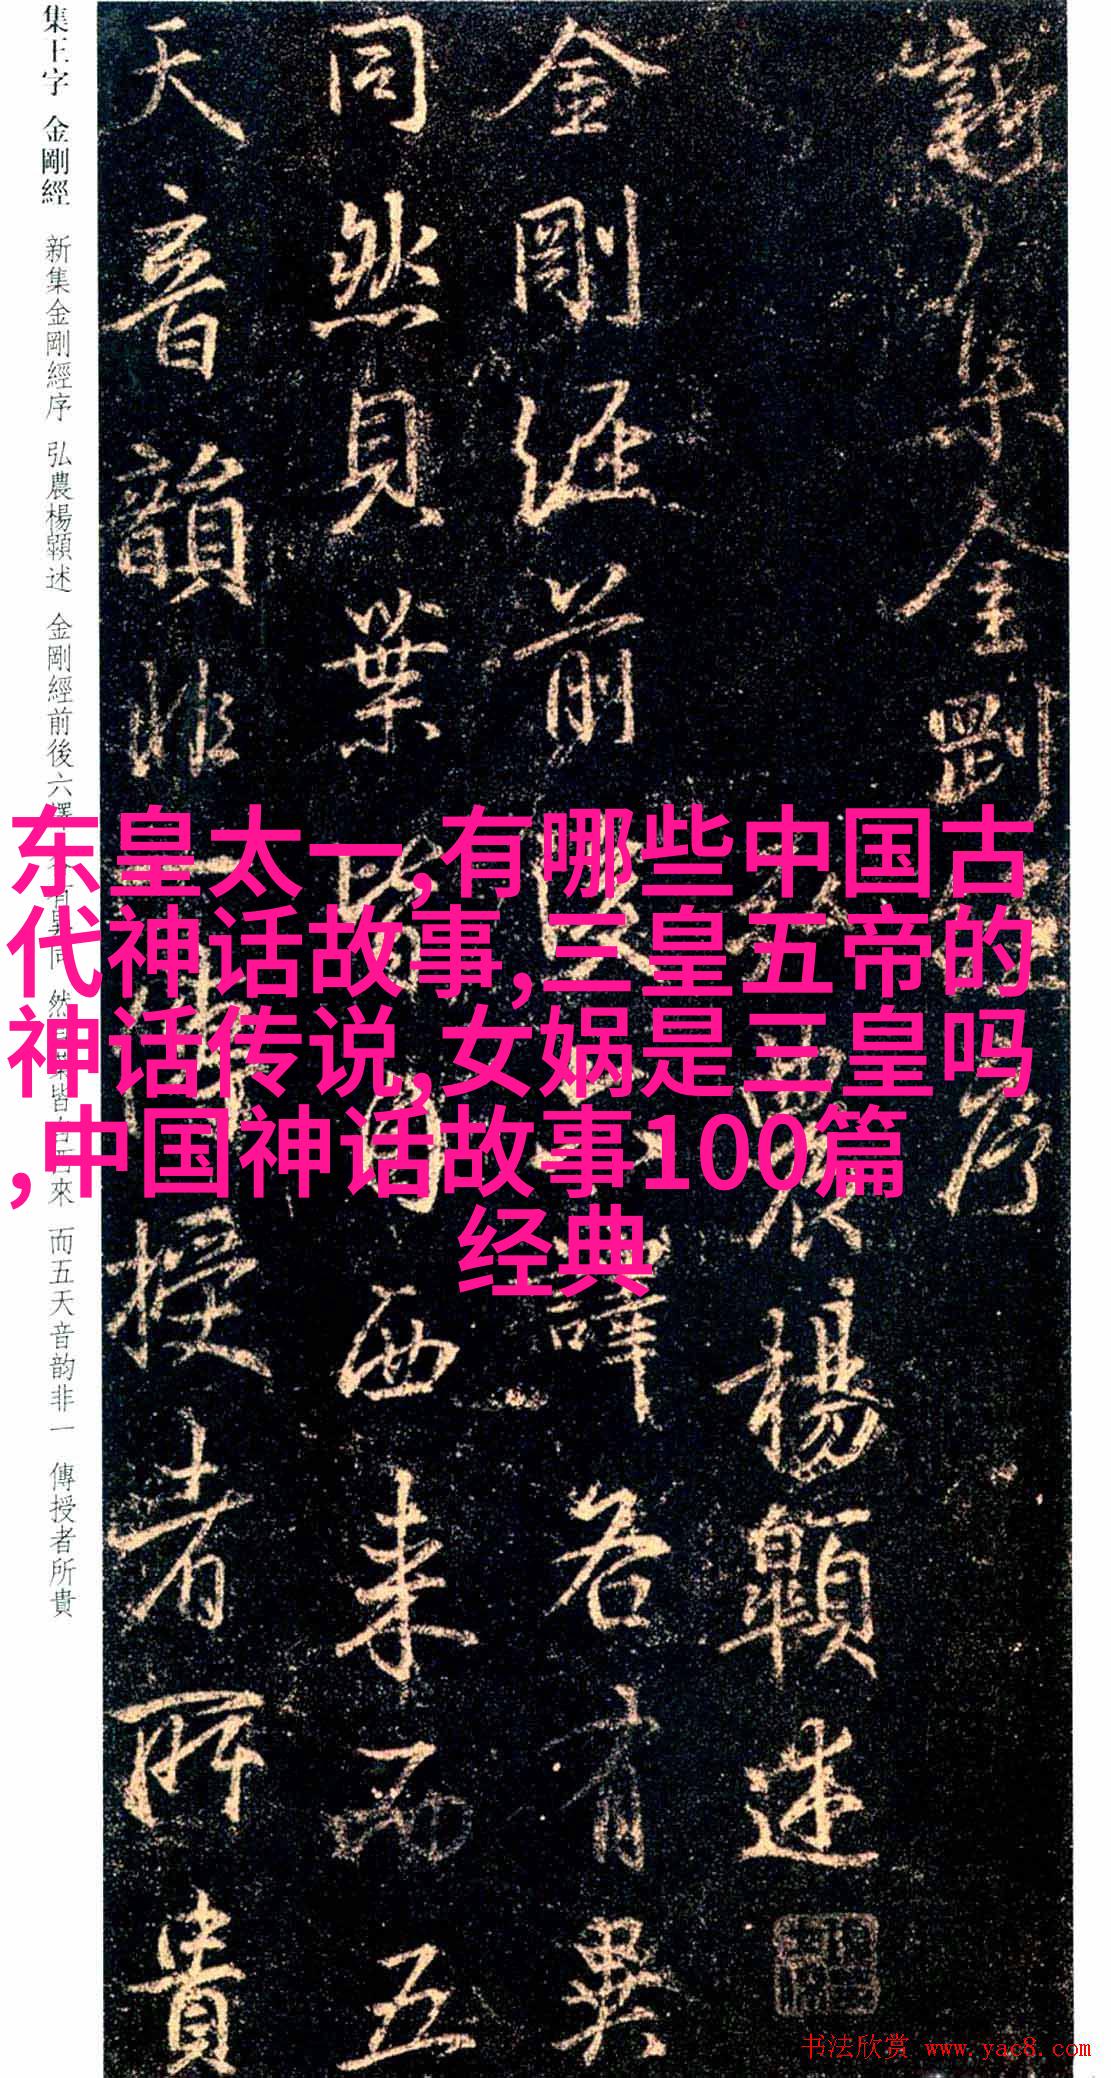 集王字 金剛經 新集金剛經序 弘農楊顗述 金剛經前後六譯 有異同 然 皆 來 而五天音韵非一 傳授者所貴
新集金剛 序
農楊顗述
金剛經前 譯各有異
同然貝葉皆自西来而五
天音韻非一 授者所貴
东皇太一,有哪些中国古
代神话故事,三皇五帝的
神话传说,女娲是三皇吗
,中国神话故事100篇
经典
书法欣赏 www.yac8.com